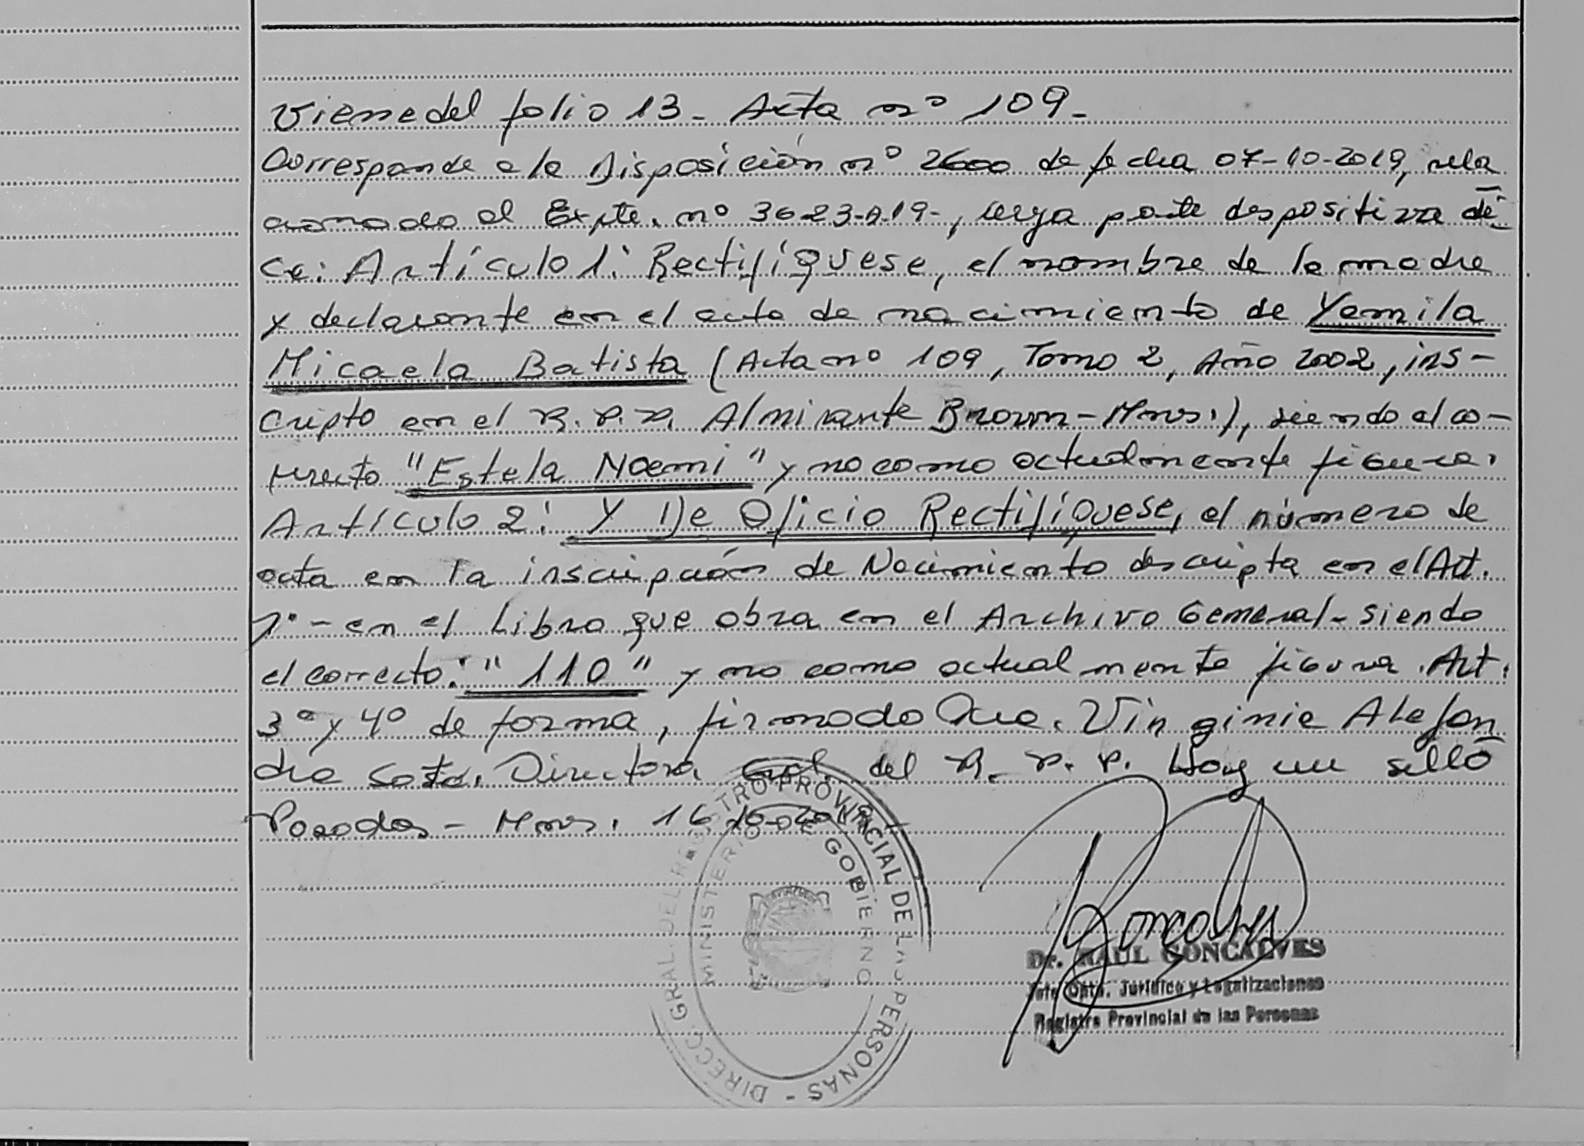 Viene del folio 13- Acta nº 109-
Corresponde a la Disposición nº 2600 de fecha 07-10-2019, rela
cionado al Expte. nº 3623-A-19-, cuya parte despositiva di
ce: Artículo 1: Rectifíquese, el nombre de la madre
y declarante en el acta de nacimiento de Yamila
Micaela Batista (Acta nº 109, Tomo 2, Año 2002, ins-
cripto en el R.P.P. Almirante Brown-Mnes.), siendo el co-
rrecto "Estela Noemi" y no como actualmente figura.
Artículo 2: Y De Oficio Rectifíquese, el número de
acta en la inscripción de Nacimiento descripta en el Art.
1º- en el Libro que obra en el Archivo General- siendo
el correcto: "110" y no como actualmente figura. Art.
3º y 4º de forma, firmado Dra. Virginia Alejan
dra Soto. Directora Gral. del R.P.P. Hay un sello
Posadas- Mnes. 16-10-2019-
DIRECC. GRAL. DEL REGISTRO PROVINCIAL DE LAS PERSONAS -
MINISTERIO DE GOBIERNO
Dr. RAUL GONCALVES
Jefe Dpto. Jurídico y Legalizaciones
Registro Provincial de las Personas